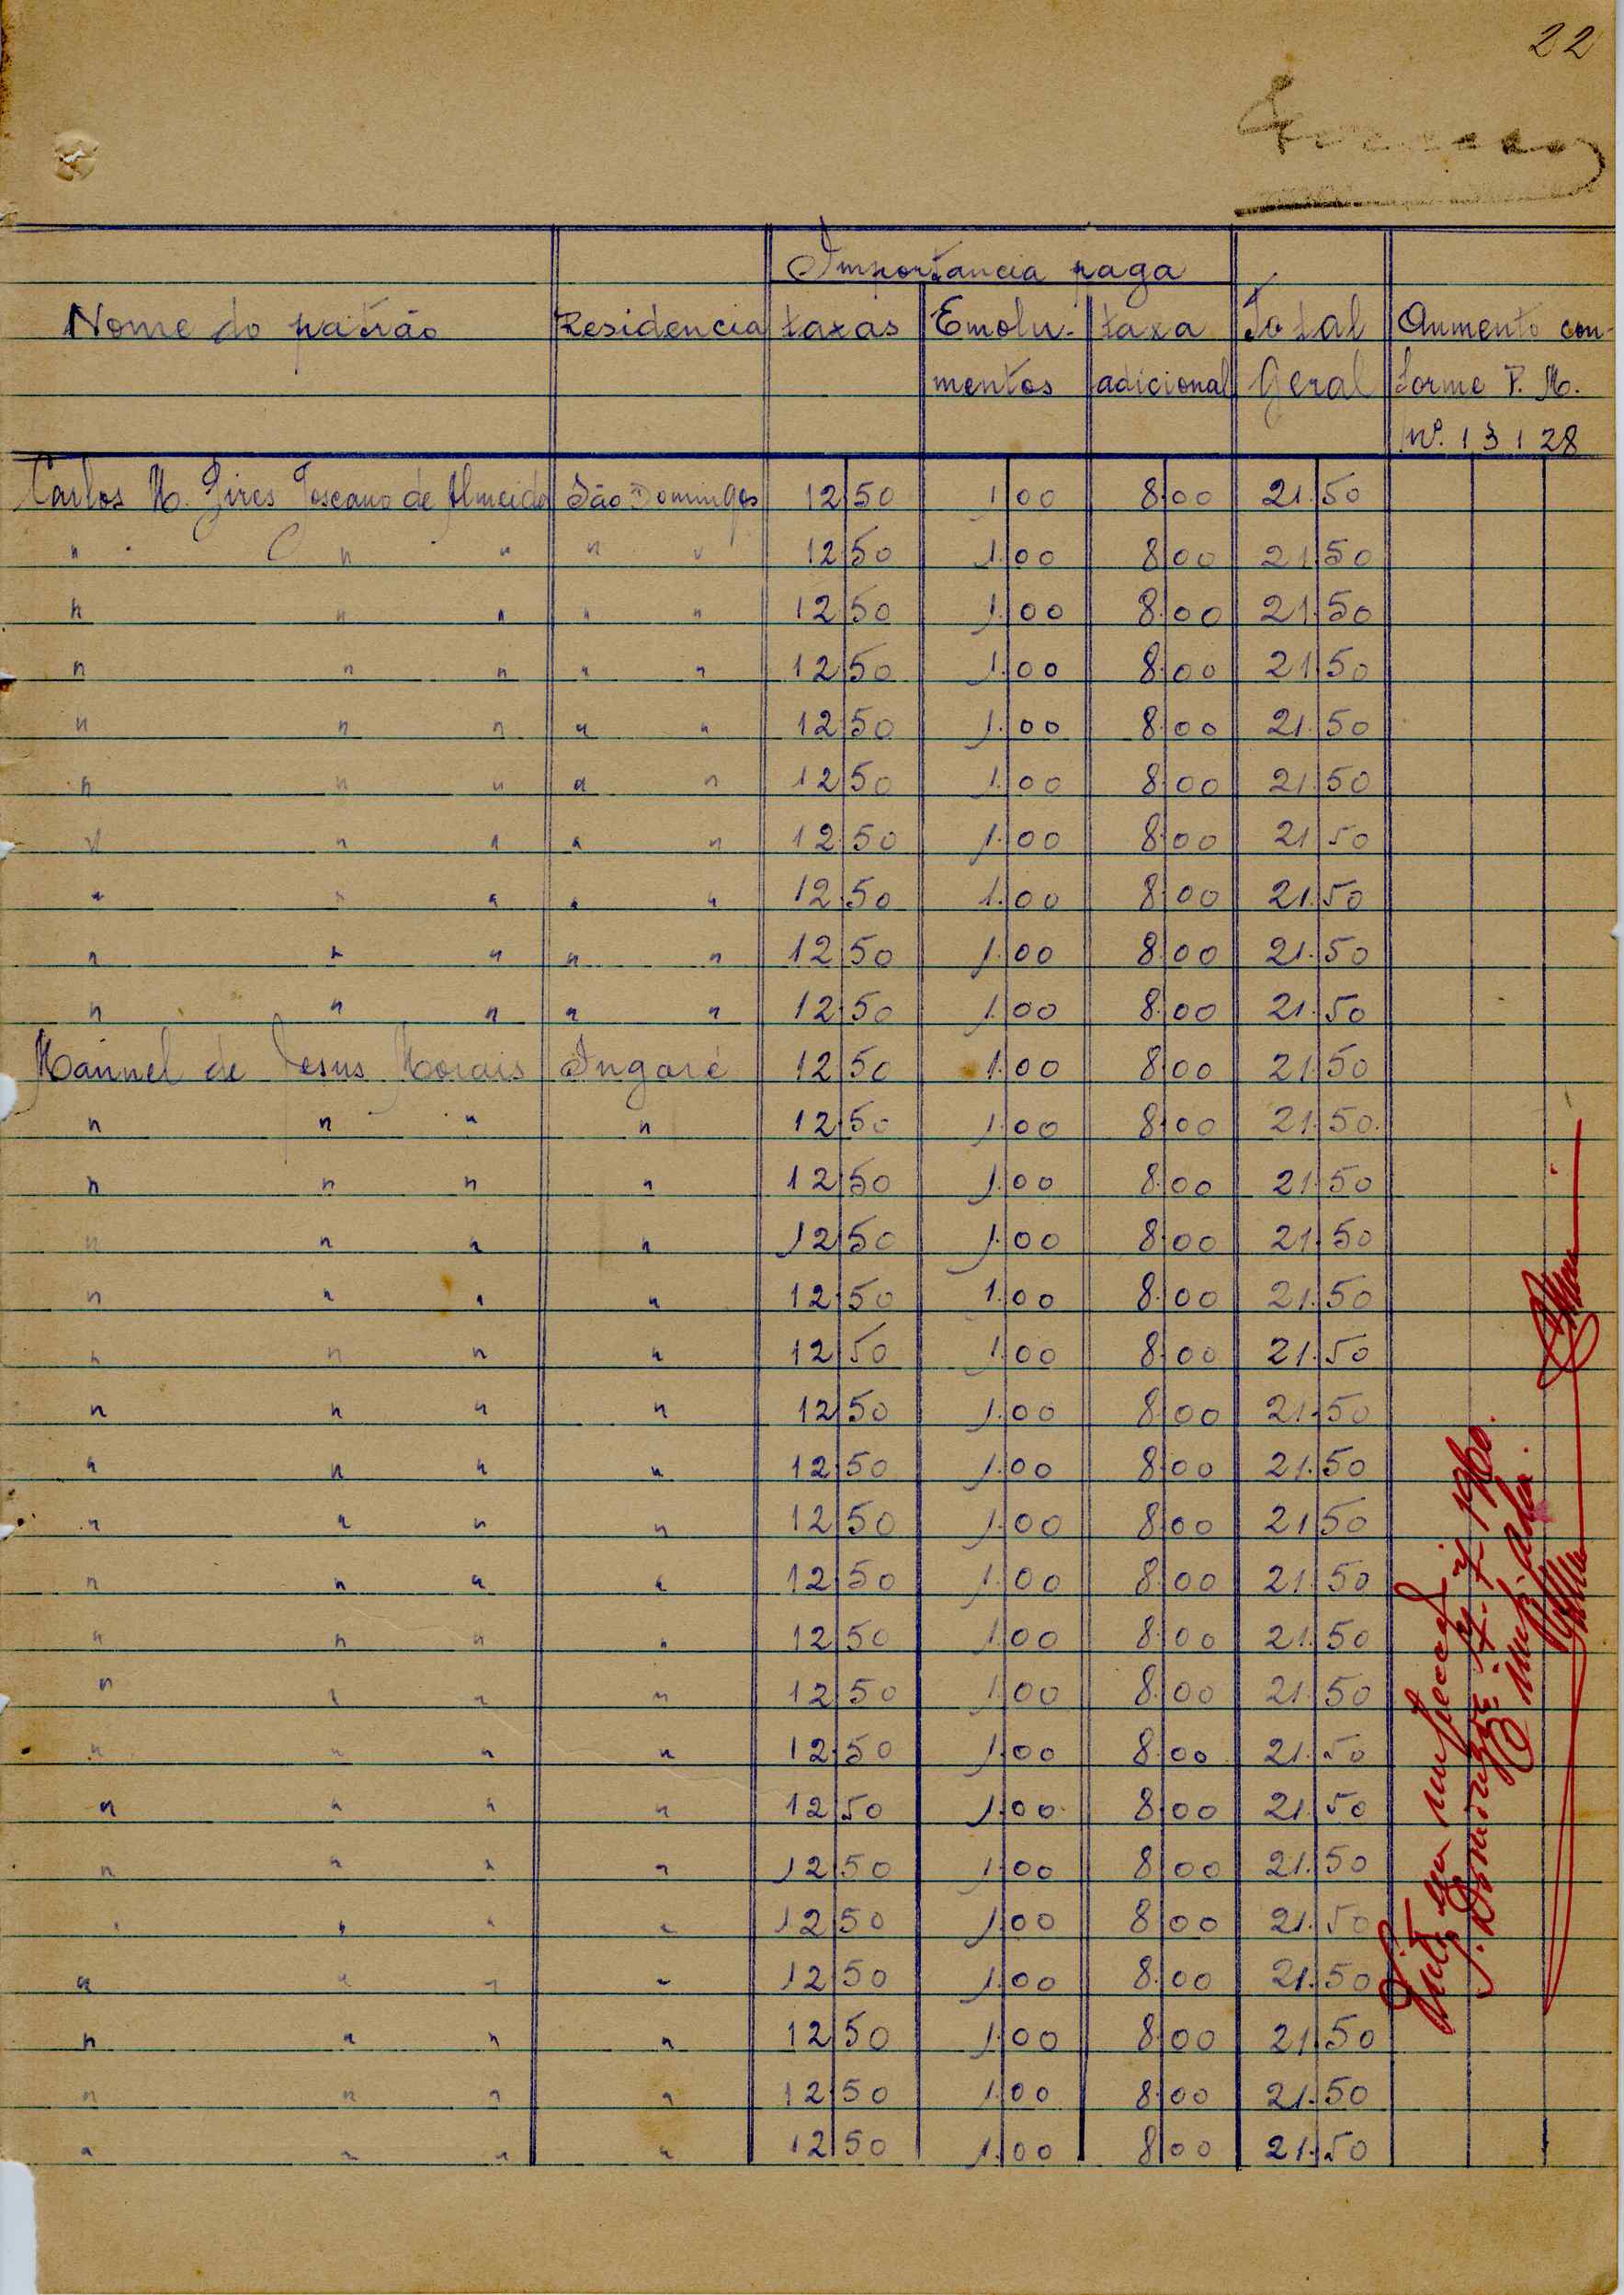 22
Importancia paga
Nome do patrão Residencia taxas Emolu- taxa Total Aumento con-
mentos adicional Geral forme P. M.
nº. 13128
Carlos M. Pires Toscano de Almeida São Domingos 12 50 1.00 8.00 21.50
" " " " " 12 50 1.00 8.00 21.50
" " " " " 12 50 1.00 8.00 21.50
" " " " " 12 50 1.00 8.00 21.50
" " " " " 12 50 1.00 8.00 21.50
" " " " " 12 50 1.00 8.00 21.50
" " " " " 12 50 1.00 8.00 21.50
" " " " " 12 50 1.00 8.00 21.50
" " " " " 12 50 1.00 8.00 21.50
" " " " " 12 50 1.00 8.00 21.50
Manuel de Jesus Morais Ingoré 12 50 1.00 8.00 21.50
" " " " 12 50 1.00 8.00 21.50
" " " " 12 50 1.00 8.00 21.50
" " " " 12 50 1.00 8.00 21.50
" " " " 12 50 1.00 8.00 21.50
" " " " 12 50 1.00 8.00 21.50
" " " " 12 50 1.00 8.00 21.50
" " " " 12 50 1.00 8.00 21.50
" " " " 12 50 1.00 8.00 21.50
" " " " 12 50 1.00 8.00 21.50
" " " " 12 50 1.00 8.00 21.50
" " " " 12 50 1.00 8.00 21.50
" " " " 12 50 1.00 8.00 21.50
" " " " 12 50 1.00 8.00 21.50
" " " " 12 50 1.00 8.00 21.50
" " " " 12 50 1.00 8.00 21.50
" " " " 12 50 1.00 8.00 21.50
" " " " 12 50 1.00 8.00 21.50
" " " " 12 50 1.00 8.00 21.50
" " " " 12 50 1.00 8.00 21.50
Visto em inspecção
S. Domingos, 1960.